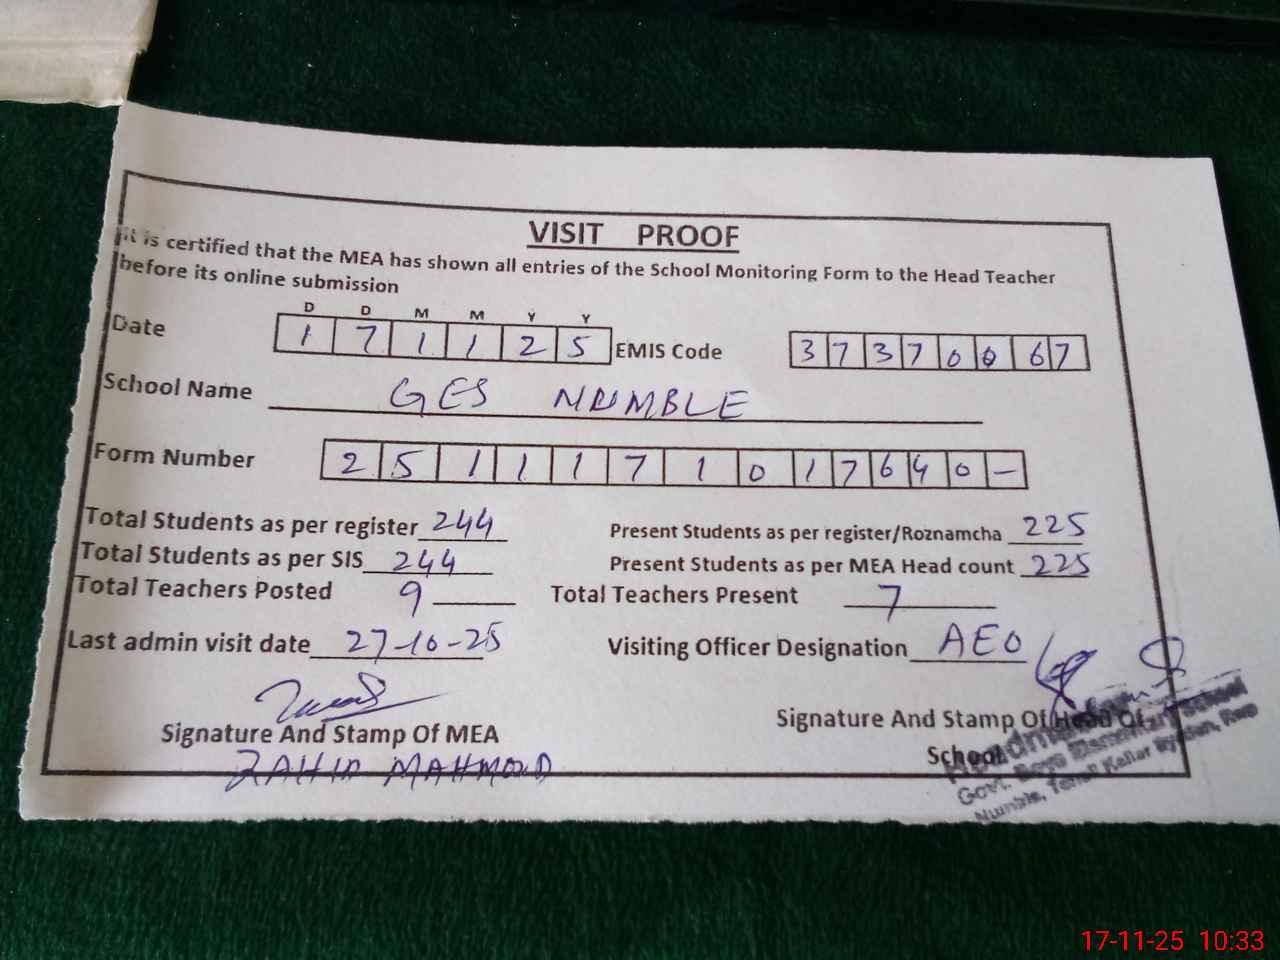 VISIT PROOF
It is certified that the MEA has shown all entries of the School Monitoring Form to the Head Teacher
before its online submission
D D M M Y Y
Date 1 7 1 1 2 5 EMIS Code 3 7 3 7 0 0 6 7
School Name GES NUMBLE
Form Number 2 5 1 1 1 7 1 0 1 7 6 4 0 -
Total Students as per register 244 Present Students as per register/Roznamcha 225
Total Students as per SIS 244 Present Students as per MEA Head count 225
Total Teachers Posted 9 Total Teachers Present 7
Last admin visit date 27-10-25 Visiting Officer Designation AEO
Signature And Stamp Of MEA Signature And Stamp Of Head Of
School
ZAHID MAHMOOD
Govt. Boys Elementary School
Numble, Kallar Rwp
17-11-25 10:33